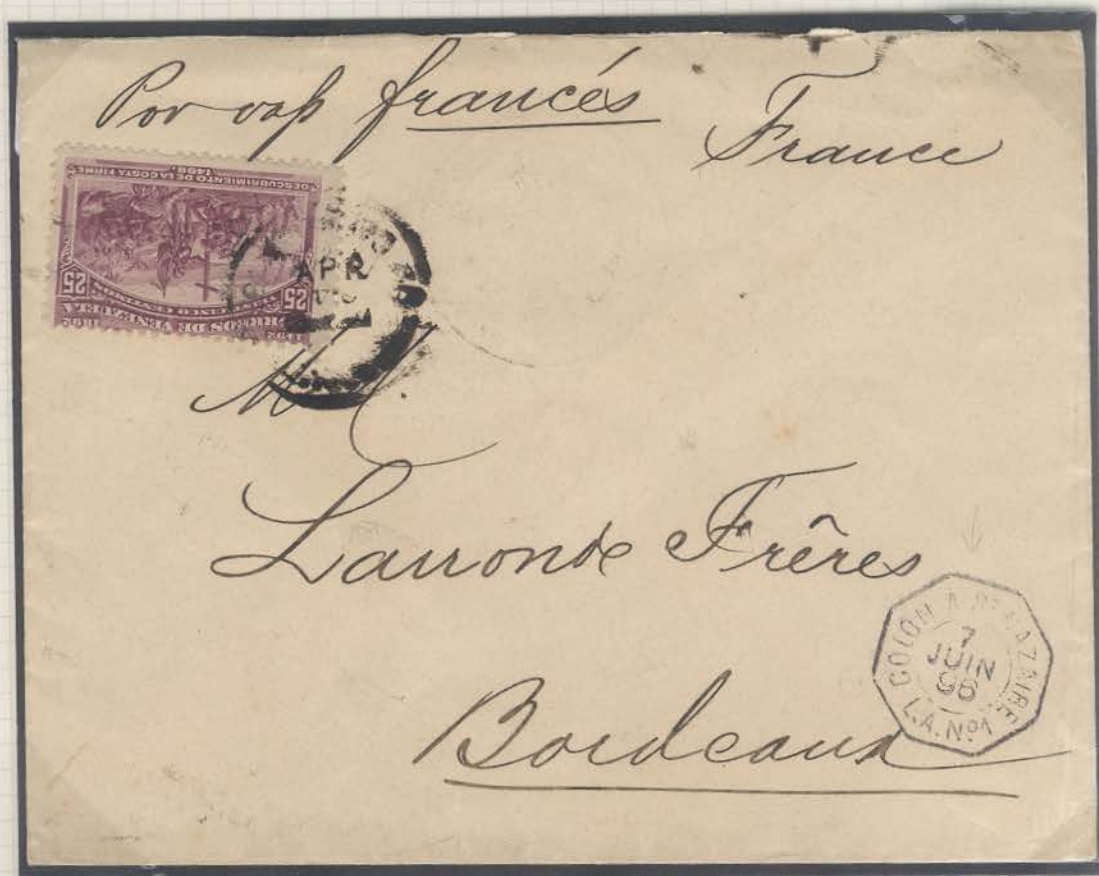 Por vap francés
France
DESCUBRIMIENTO DE LA COSTA FIRME
1498.
25 25
CINCO CENTIMOS
CORREOS DE VENEZUELA
1492 1892
APR
M
Larronde Frères
Bordeaux
COLON A ST NAZAIRE
7
JUIN
96
L.A.No1